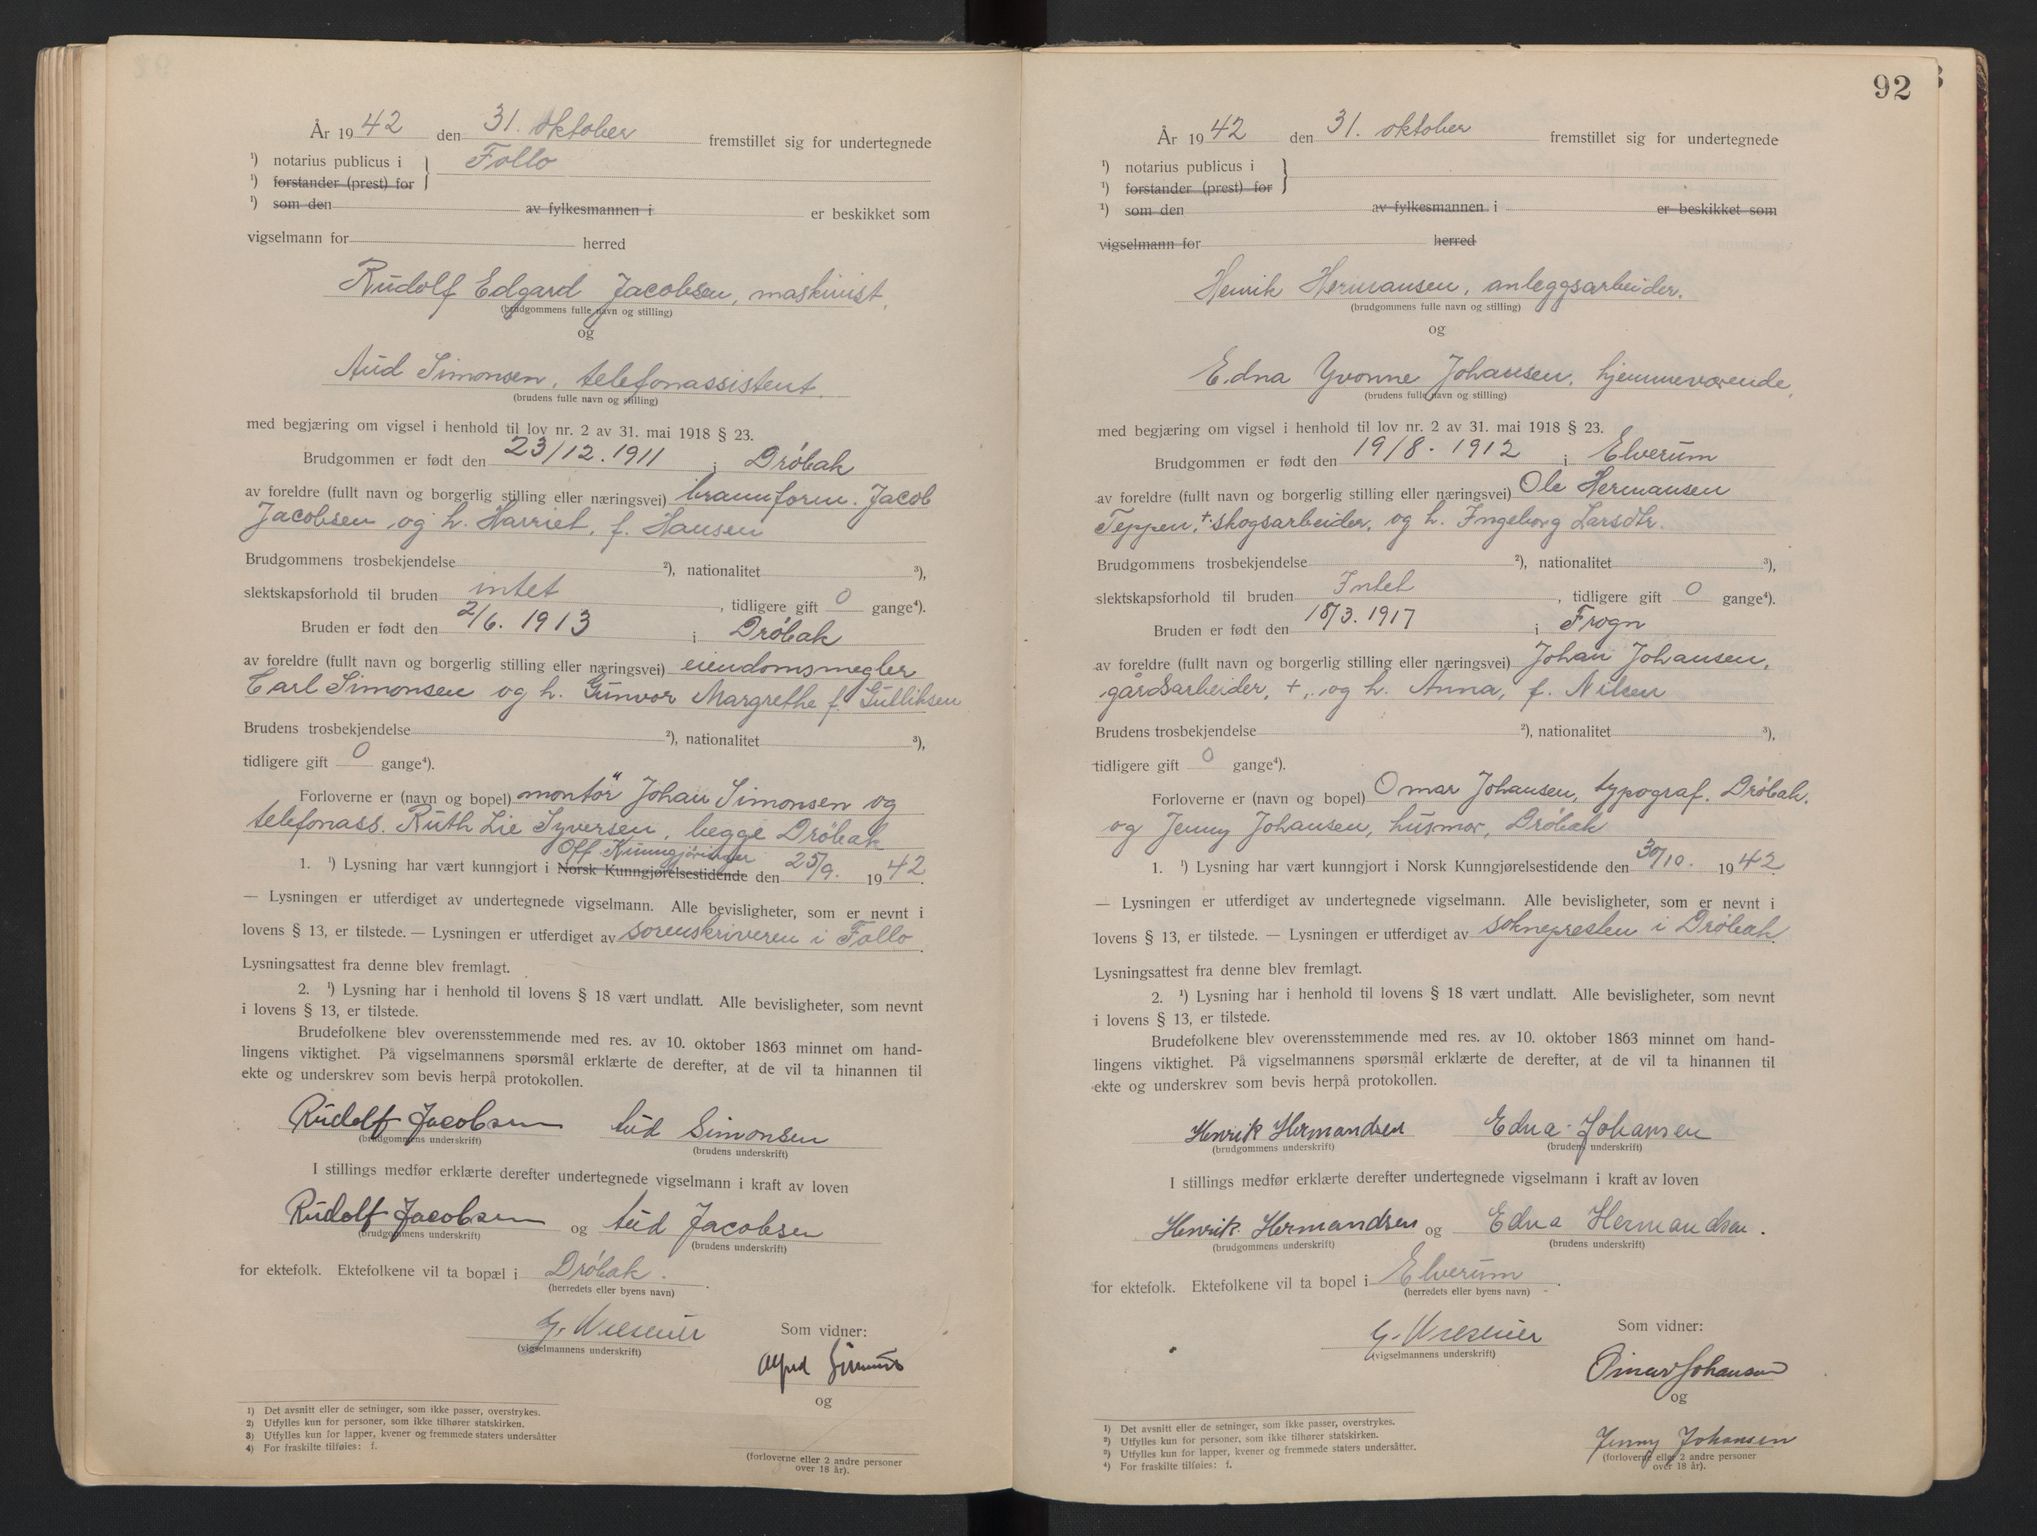 År 1942 den 31. oktober fremstillet sig for undertegnede
¹) notarius publicus i } Follo
¹) forstander (prest) for
¹) som den av fylkesmannen i er beskikket som
vigselmann for herred
Rudolf Edgard Jacobsen, maskinist,
(brudgommens fulle navn og stilling)
og
Aud Simonsen, telefonassistent.
(brudens fulle navn og stilling)
med begjæring om vigsel i henhold til lov nr. 2 av 31. mai 1918 § 23.
Brudgommen er født den 23/12. 1911 i Drøbak
av foreldre (fullt navn og borgerlig stilling eller næringsvei) brannform. Jacob
Jacobsen og h. Harriet, f. Hansen
Brudgommens trosbekjendelse ²), nationalitet ³),
slektskapsforhold til bruden intet, tidligere gift 0 gange⁴).
Bruden er født den 2/6. 1913 i Drøbak
av foreldre (fullt navn og borgerlig stilling eller næringsvei) eiendomsmegler
Carl Simonsen og h. Gunvor Margrethe f. Gulliksen
Brudens trosbekjendelse ²), nationalitet ³),
tidligere gift 0 gange⁴).
Forloverne er (navn og bopel) montör Johan Simonsen og
telefonass. Ruth Lie Syversen, begge Drøbak
Off. Kunngjøringer
1. ¹) Lysning har vært kunngjort i Norsk Kunngjørelsestidende den 25/9. 1942
— Lysningen er utferdiget av undertegnede vigselmann. Alle bevisligheter, som er nevnt i
lovens § 13, er tilstede. — Lysningen er utferdiget av sorenskriveren i Follo
Lysningsattest fra denne blev fremlagt.
2. ¹) Lysning har i henhold til lovens § 18 vært undlatt. Alle bevisligheter, som nevnt
i lovens § 13, er tilstede.
Brudefolkene blev overensstemmende med res. av 10. oktober 1863 minnet om hand-
lingens viktighet. På vigselmannens spørsmål erklærte de derefter, at de vil ta hinannen til
ekte og underskrev som bevis herpå protokollen.
Rudolf Jacobsen Aud Simonsen
(brudgommens underskrift) (brudens underskrift)
I stillings medfør erklærte derefter undertegnede vigselmann i kraft av loven
Rudolf Jacobsen og Aud Jacobsen
(brudgommens underskrift) (brudens underskrift)
for ektefolk. Ektefolkene vil ta bopæl i Drøbak.
(herredets eller byens navn)
G. Wiesener Som vidner:
(vigselmannens underskrift)
Alfred
og
(forloverne eller 2 andre personer
over 18 år).
1) Det avsnitt eller de setninger, som ikke passer, overstrykes.
2) Utfylles kun for personer, som ikke tilhører statskirken.
3) Utfylles kun for lapper, kvener og fremmede staters undersåtter
4) For fraskilte tilføies: f.
92
År 1942 den 31. oktober fremstillet sig for undertegnede
¹) notarius publicus i }
¹) forstander (prest) for
¹) som den av fylkesmannen i er beskikket som
vigselmann for herred
Henrik Hermansen, anleggsarbeider.
(brudgommens fulle navn og stilling)
og
Edna Yvonne Johansen, hjemmeværende,
(brudens fulle navn og stilling)
med begjæring om vigsel i henhold til lov nr. 2 av 31. mai 1918 § 23.
Brudgommen er født den 19/8. 1912 i Elverum
av foreldre (fullt navn og borgerlig stilling eller næringsvei) Ole Hermansen
Teppen, + skogsarbeider, og h. Ingeborg Larsdtr.
Brudgommens trosbekjendelse ²), nationalitet ³),
slektskapsforhold til bruden Intet, tidligere gift 0 gange⁴).
Bruden er født den 18/3. 1917 i Frogn
av foreldre (fullt navn og borgerlig stilling eller næringsvei) Johan Johansen,
gårdsarbeider, +, og h. Anna, f. Nilsen
Brudens trosbekjendelse ²), nationalitet ³),
tidligere gift 0 gange⁴).
Forloverne er (navn og bopel) Omar Johansen, typograf. Drøbak.
og Jenny Johansen, husmor, Drøbak
1. ¹) Lysning har vært kunngjort i Norsk Kunngjørelsestidende den 30/10. 1942.
— Lysningen er utferdiget av undertegnede vigselmann. Alle bevisligheter, som er nevnt i
lovens § 13, er tilstede. — Lysningen er utferdiget av soknepresten i Drøbak.
Lysningsattest fra denne blev fremlagt.
2. ¹) Lysning har i henhold til lovens § 18 vært undlatt. Alle bevisligheter, som nevnt
i lovens § 13, er tilstede.
Brudefolkene blev overensstemmende med res. av 10. oktober 1863 minnet om hand-
lingens viktighet. På vigselmannens spørsmål erklærte de derefter, at de vil ta hinannen til
ekte og underskrev som bevis herpå protokollen.
Henrik Hermandsen Edna Johansen
(brudgommens underskrift) (brudens underskrift)
I stillings medfør erklærte derefter undertegnede vigselmann i kraft av loven
Henrik Hermandsen og Edna Hermandsen.
(brudgommens underskrift) (brudens underskrift)
for ektefolk. Ektefolkene vil ta bopel i Elverum.
(herredets eller byens navn)
G. Wiesener Som vidner:
(vigselmannens underskrift)
Omar Johansen
og
Jenny Johansen
(forloverne eller 2 andre personer
over 18 år).
1) Det avsnitt eller de setninger, som ikke passer, overstrykes.
2) Utfylles kun for personer, som ikke tilhører statskirken.
3) Utfylles kun for lapper, kvener og fremmede staters undersåtter.
4) For fraskilte tilføies: f.